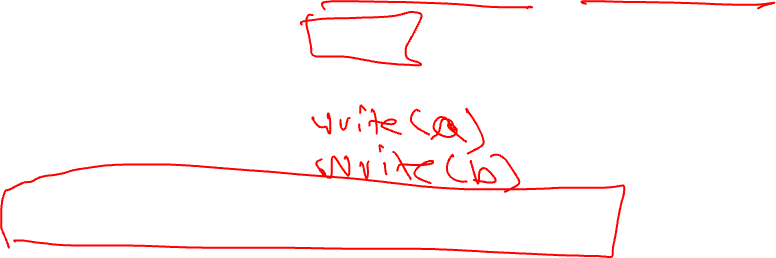 write(a)
write(b)